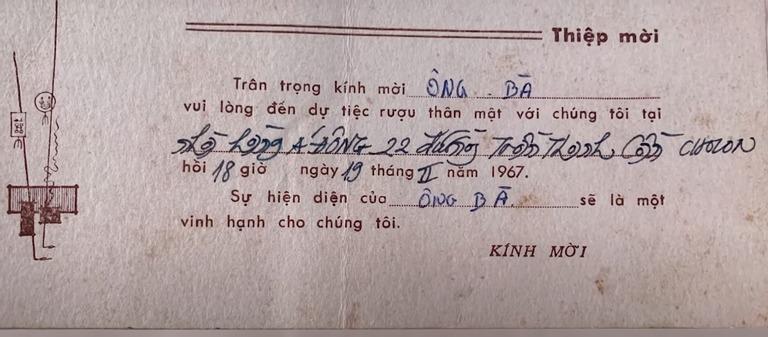 Thiệp mời
Trân trọng kính mời ÔNG BÀ
vui lòng đến dự tiệc rượu thân mật với chúng tôi tại
nhà hàng Á ĐÔNG 22 đường Trần Thanh Cần CHOLON
hồi 18 giờ ngày 19 tháng II năm 1967.
Sự hiện diện của ÔNG BÀ sẽ là một
vinh hạnh cho chúng tôi.
KÍNH MỜI